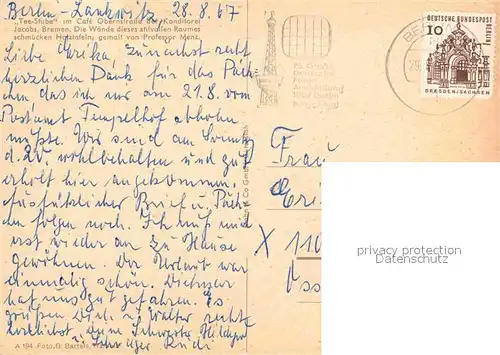 Berlin-Lankwitz 28.8.67
"Tee-Stube" im Café Obernstraße der Konditorei
Jacobs, Bremen. Die Wände dieses stilvollen Raumes
schmücken Holztafeln, gemalt von Professor Menz.
Liebe Erika! Zunächst recht
herzlichen Dank für das Päck-
chen das ich nur am 21.8. vom
Postamt Tempelhof abholen
mußte. Wir sind am Sonntag
d. 20. wohlbehalten und gut
erholt hier angekommen.
Ausführlicher Brief u. Päck-
chen folgen noch. Ich muß mich
erst wieder an zu Hause
gewöhnen. Der Urlaub war
einmalig schön. Dietmar
hat uns gut gefahren. Es
grüßen Dich u. Walter recht
herzlichst, Deine Schwester Hildegard
u. Schwager Rudi
A 194 Foto: B. Bartels,
DEUTSCHE BUNDESPOST
BERLIN
10
DRESDEN/SACHSEN
Große
Deutsche
Frau
Eri
X 110
Oss
privacy protection
www.ansichtskarten-center.de